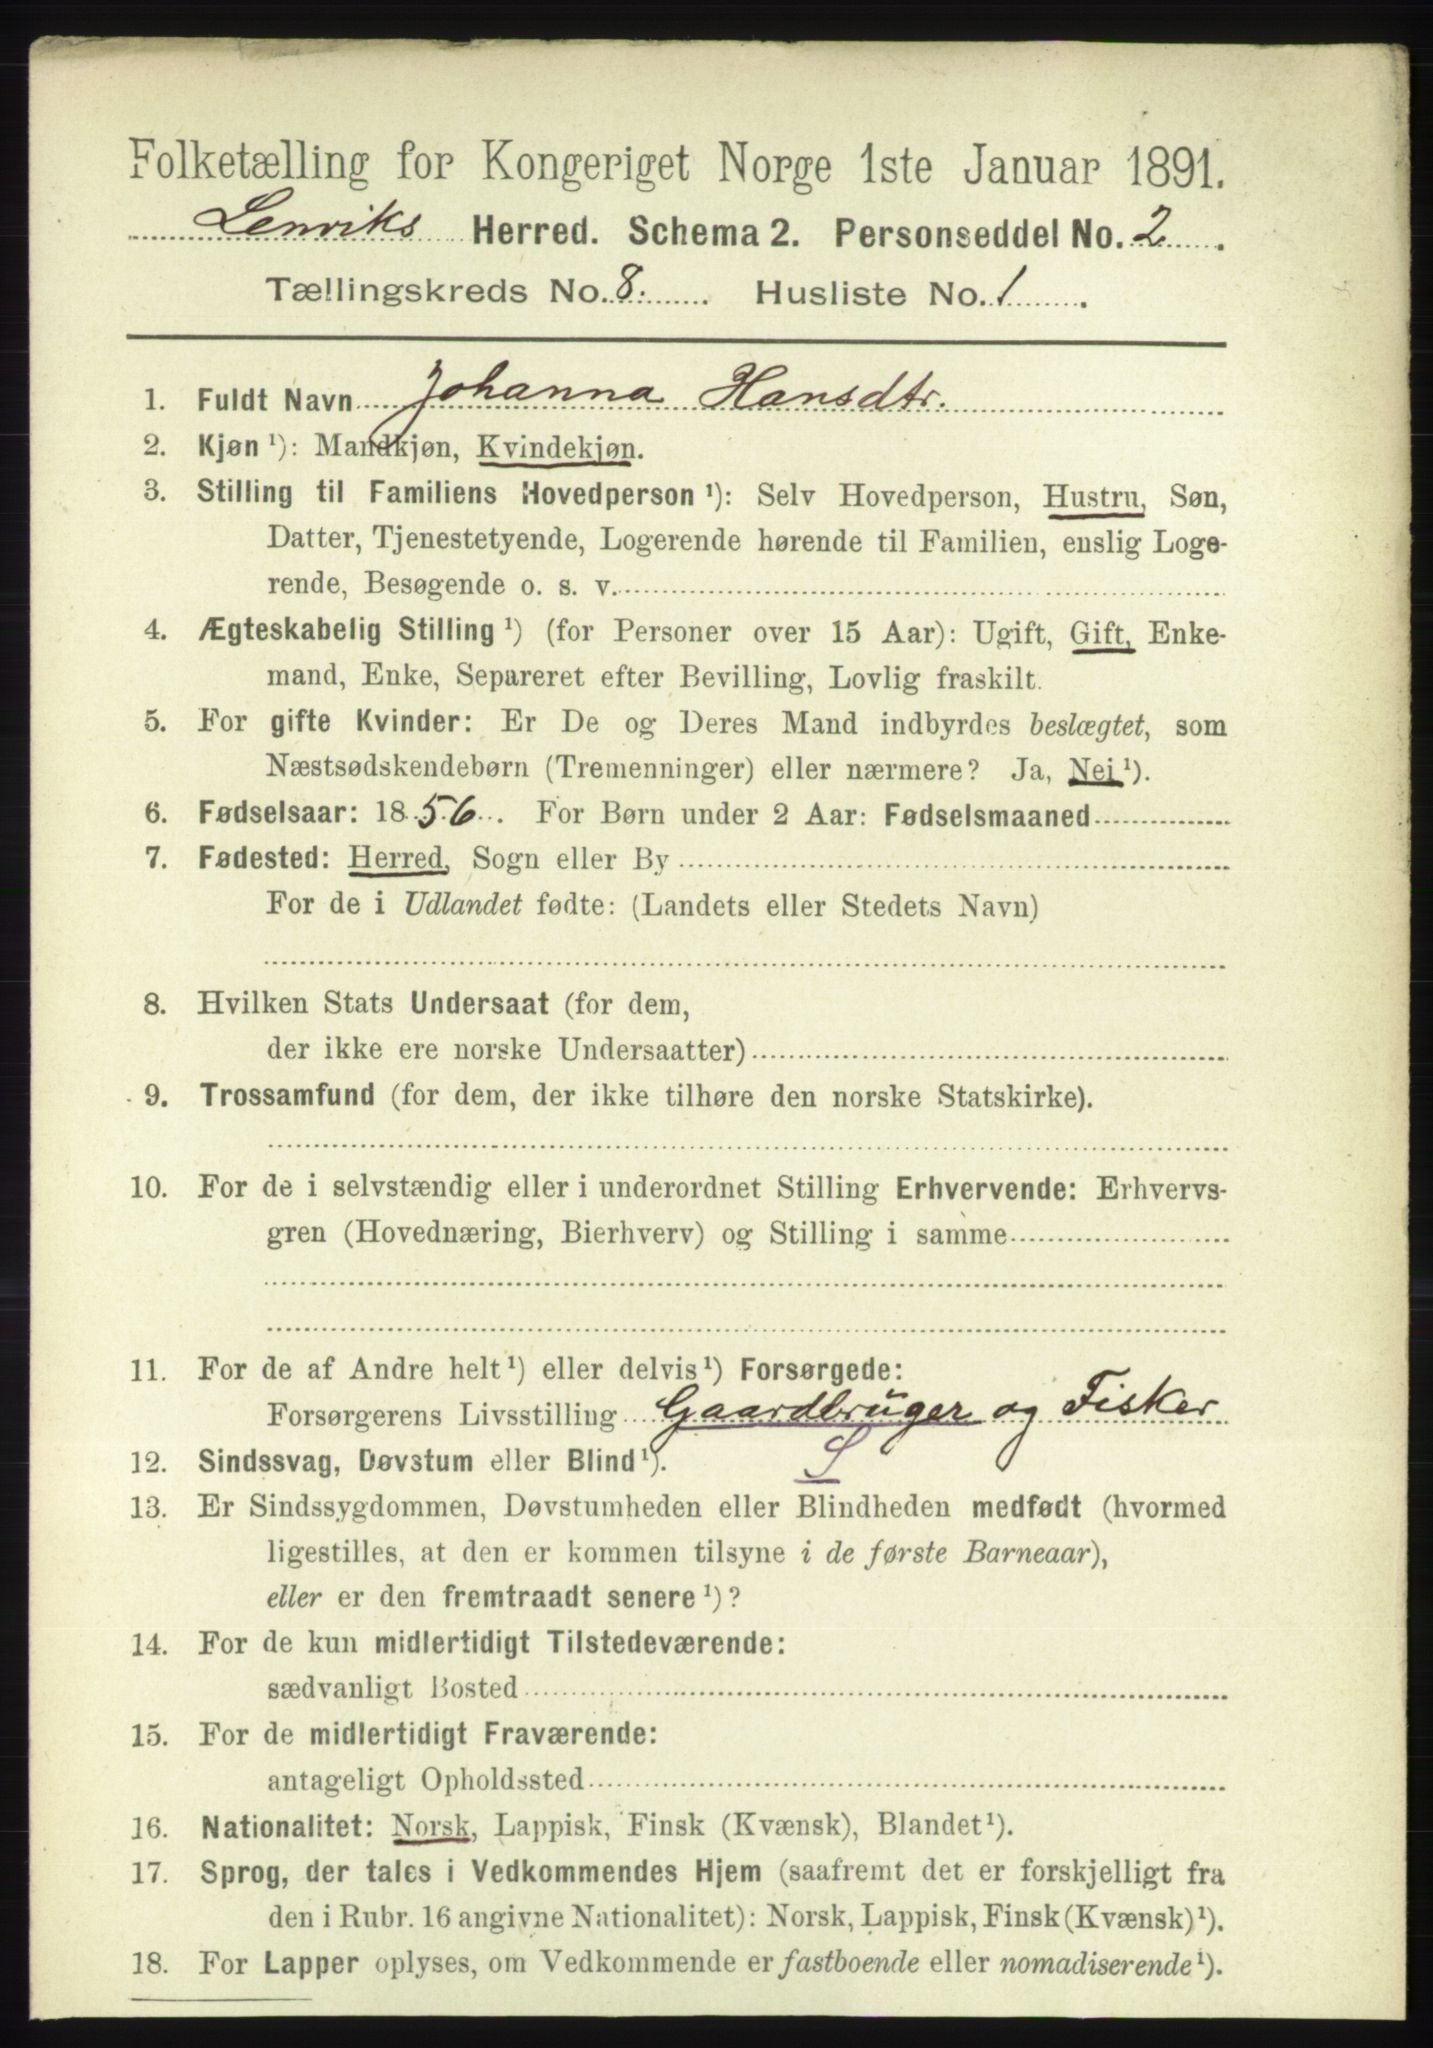 Folketælling for Kongeriget Norge 1ste Januar 1891.
Lenviks Herred. Schema 2. Personseddel No. 2.
Tællingskreds No. 8. Husliste No. 1.
1. Fuldt Navn Johanna Hansdtr.
2. Kjøn ¹): Mandkjøn, Kvindekjøn.
3. Stilling til Familiens Hovedperson ¹): Selv Hovedperson, Hustru, Søn,
Datter, Tjenestetyende, Logerende hørende til Familien, enslig Loge-
rende, Besøgende o. s. v.
4. Ægteskabelig Stilling ¹) (for Personer over 15 Aar): Ugift, Gift, Enke-
mand, Enke, Separeret efter Bevilling, Lovlig fraskilt.
5. For gifte Kvinder: Er De og Deres Mand indbyrdes beslægtet, som
Næstsødskendebørn (Tremenninger) eller nærmere? Ja, Nei ¹).
6. Fødselsaar: 1856. For Børn under 2 Aar: Fødselsmaaned
7. Fødested: Herred, Sogn eller By
For de i Udlandet fødte: (Landets eller Stedets Navn)
8. Hvilken Stats Undersaat (for dem,
der ikke ere norske Undersaatter)
9. Trossamfund (for dem, der ikke tilhøre den norske Statskirke).
10. For de i selvstændig eller i underordnet Stilling Erhvervende: Erhvervs-
gren (Hovednæring, Bierhverv) og Stilling i samme
11. For de af Andre helt ¹) eller delvis ¹) Forsørgede:
Forsørgerens Livsstilling Gaardbrüger og Fisker
12. Sindssvag, Døvstum eller Blind ¹). S
13. Er Sindssygdommen, Døvstumheden eller Blindheden medfødt (hvormed
ligestilles, at den er kommen tilsyne i de første Barneaar),
eller er den fremtraadt senere ¹)?
14. For de kun midlertidigt Tilstedeværende:
sædvanligt Bosted
15. For de midlertidigt Fraværende:
antageligt Opholdssted
16. Nationalitet: Norsk, Lappisk, Finsk (Kvænsk), Blandet ¹).
17. Sprog, der tales i Vedkommendes Hjem (saafremt det er forskjelligt fra
den i Rubr. 16 angivne Nationalitet): Norsk, Lappisk, Finsk (Kvænsk) ¹).
18. For Lapper oplyses, om Vedkommende er fastboende eller nomadiserende ¹).